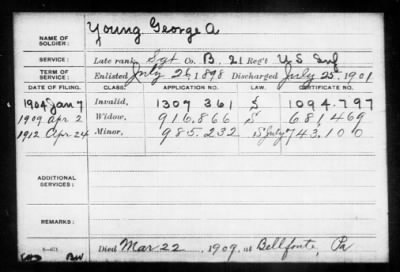 NAME OF SOLDIER: Young George A
SERVICE: Late rank Sgt Co. B. 21 Reg't U S Inf
TERM OF SERVICE: Enlisted July 26, 1898 Discharged July 25, 1901
DATE OF FILING. CLASS. APPLICATION NO. LAW. CERTIFICATE NO.
1904 Jan 7 Invalid, 1307 361 S 1094.797
1909 Apr 2 Widow, 916.866 S 681469
1912 Apr 24 Minor, 985.232 S July 743.100
ADDITIONAL SERVICES:
REMARKS:
Died Mar 22, 1909, at Bellfonte, Pa